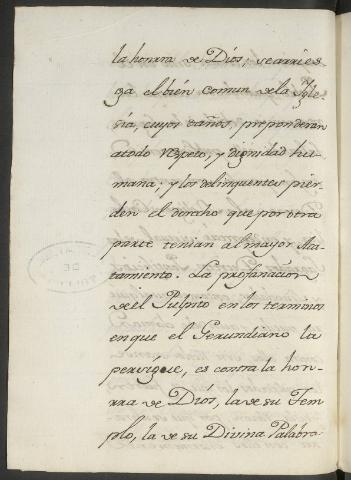 la honrra de Dios; se arries
ga el bien comun de la Ygle
sia, cuyos daños, preponderan
a todo respeto, y dignidad hu-
mana; y los delinquentes pier-
den el derecho que por otra
parte tenian al mayor Aca-
tamiento. La profanacion
de el Pulpito en los terminos
en que el Gerundiano la
persigue, es contra la hon-
rra de Dios, la de su Tem
plo, la de su Divina Palabra